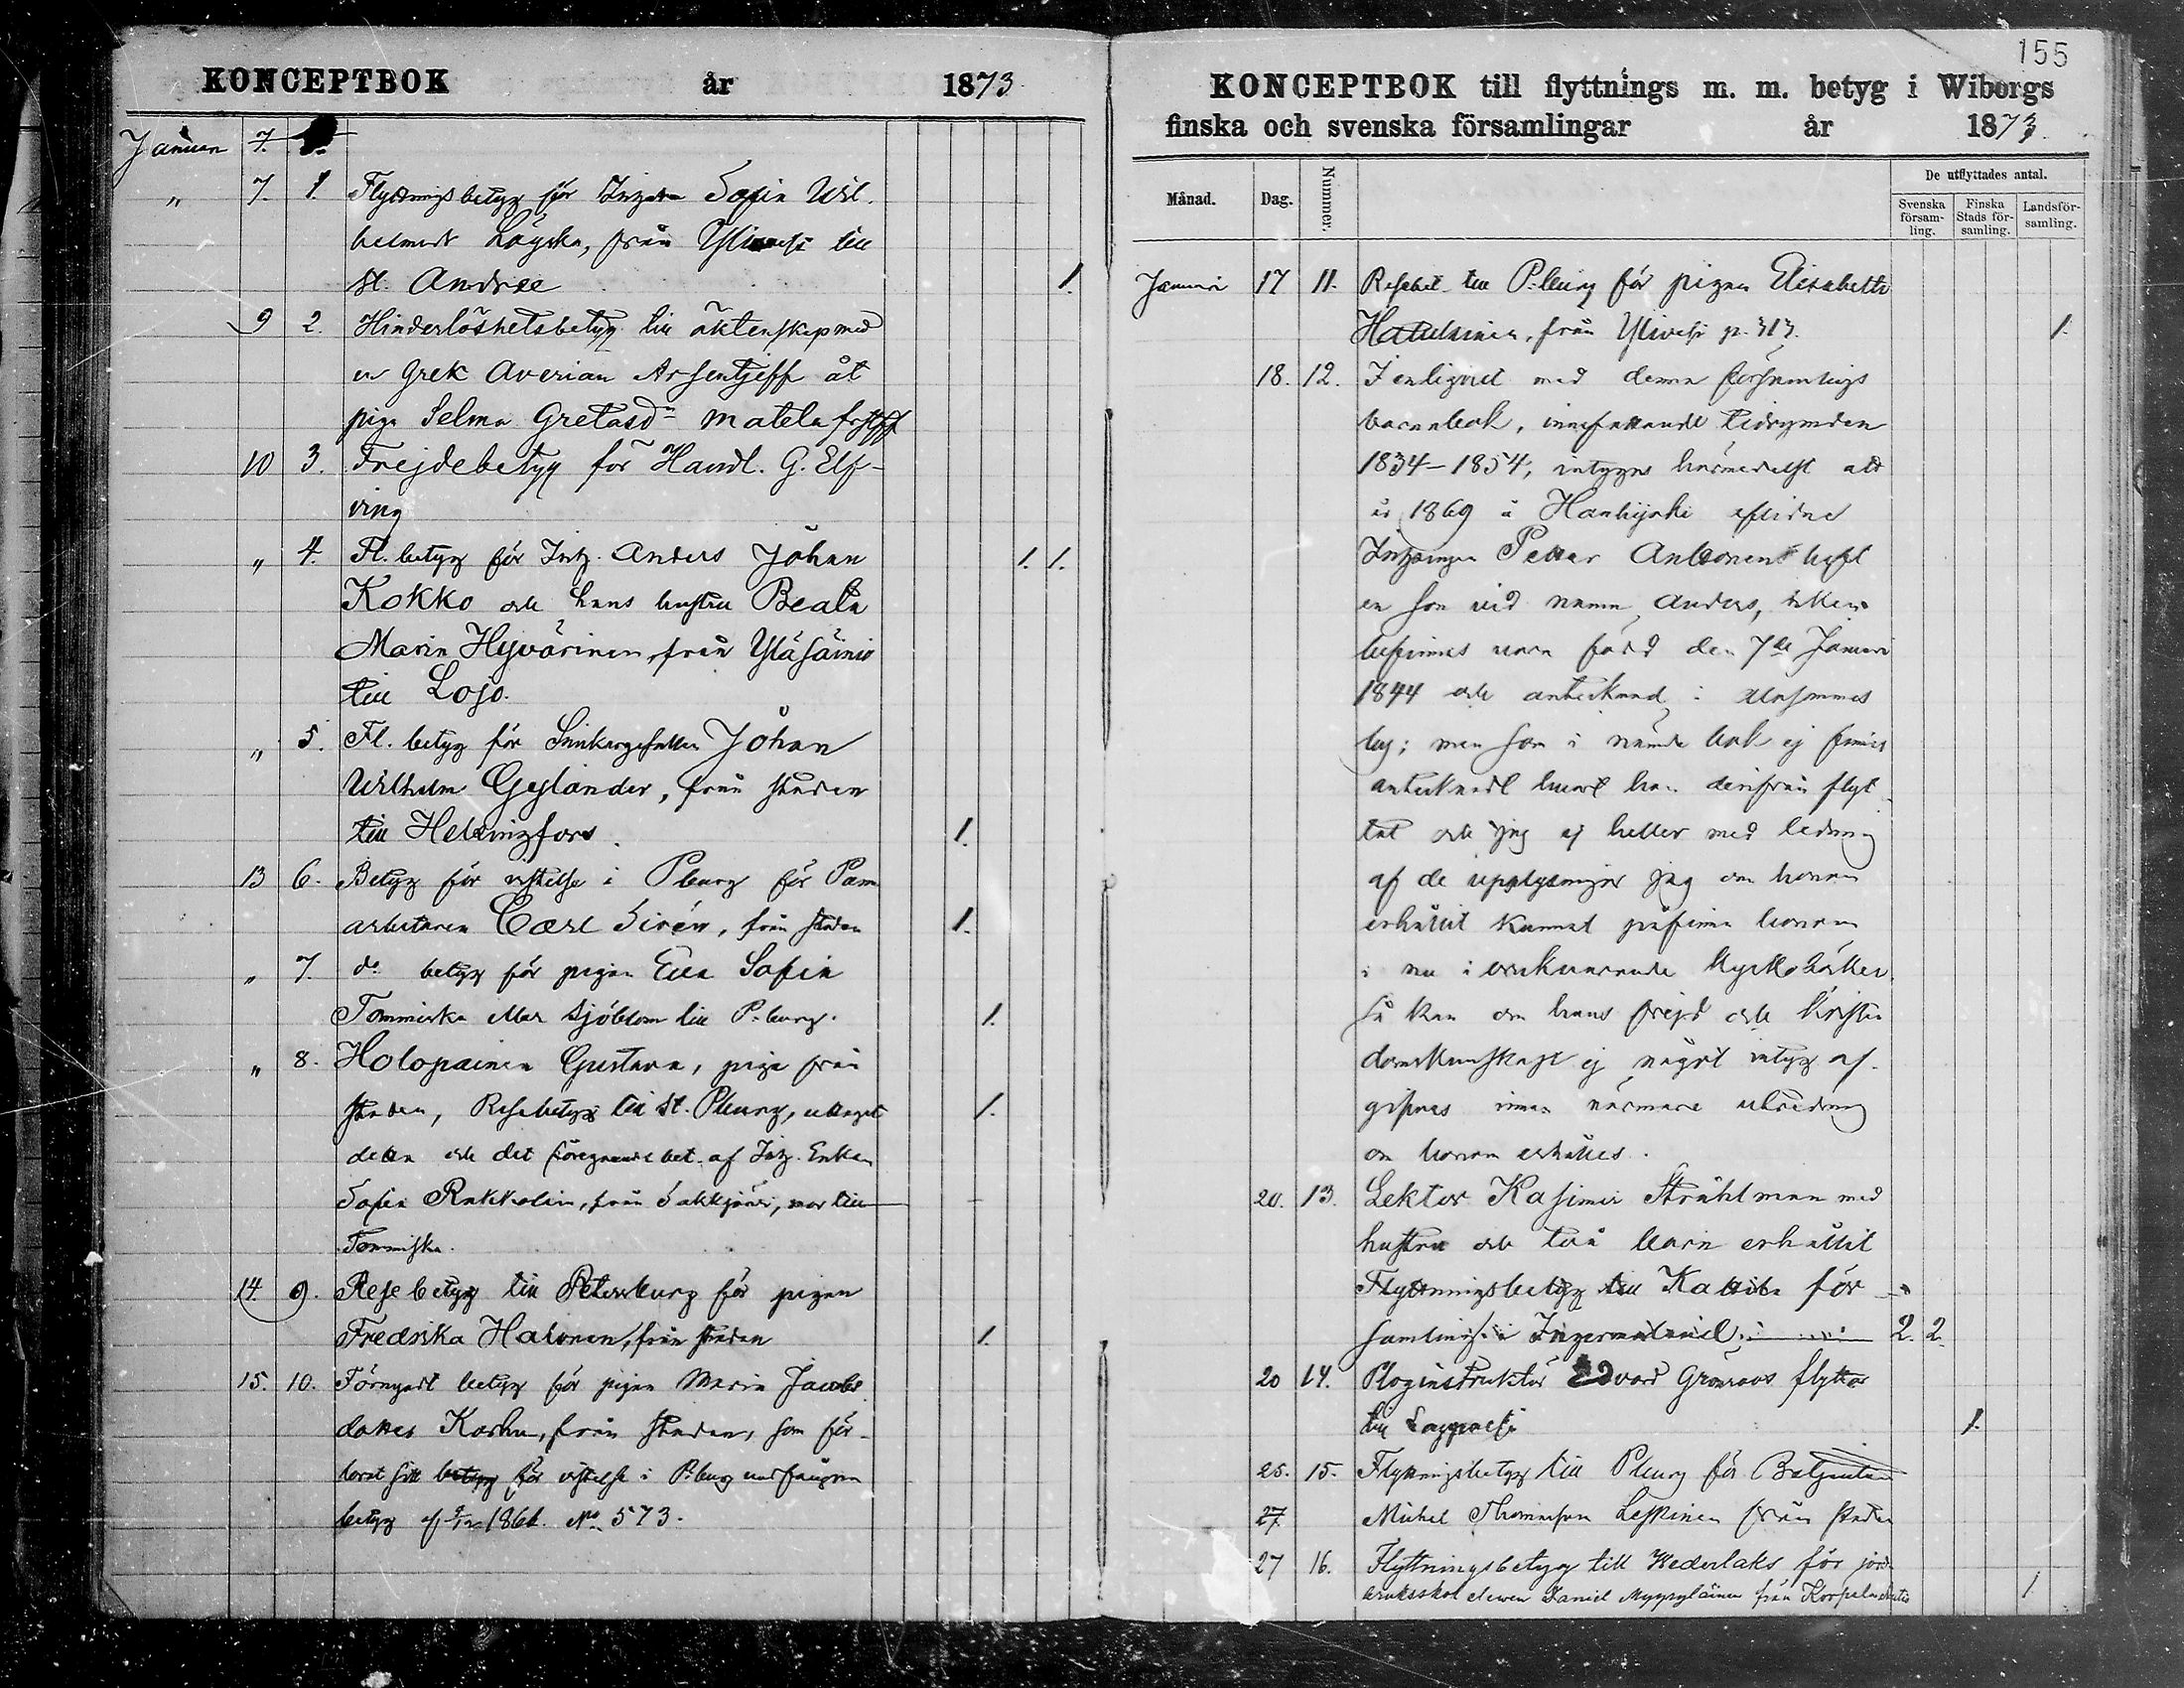 KONCEPTBOK år 1873
Januari 7.
" 7. 1. Flyttningsbetyg för Inhysn Sofia Wil-
helmsdr Löyska, från Yliwesi till
St. Andreæ 1.
9 2. Hinderlöshetsbetyg till äktenskap med
en Grek Averian Arsentjeff åt
piga Selma Gretasdr Matela
10 3. Frejdebetyg för Handl. G. Elf-
ving
" 4. Fl. betyg för Inhy. Anders Johan 1. 1.
Kokko och hans hustru Beata
Maria Hyvärinen, från Yläsäiniö
till Lojo.
" 5. Fl. betyg för Snickargesällen Johan
Wilhelm Gylander, från staden
till Helsingfors. 1.
13 6. Betyg för vistelse i Pburg för
arbetaren Carl Sirén, från staden 1.
" 7. do betyg för pigan Eva Sofia
Tommiska eller Sjöblom till P.burg. 1.
" 8. Holopainen Gustava, piga från
staden, Resebetyg till St. Pburg, uttaget 1.
detta och det föregående bet. af Inhy. Enkan
Sofia Rakkolin, från Säkkijärvi, mor till
Tommiska.
14. 9. Resebetyg till Petersburg för pigan
Fredrika Halonen, från staden 1.
15. 10. Förnyadt betyg för pigan Maria Jacobs
dotter Karhu, från staden, som för-
lorat sitt betyg för vistelse i P.burg undfångna
betyg af 1866. No 573.
155
KONCEPTBOK till flyttnings m. m. betyg i Wiborgs
finska och svenska församlingar år 1873.
Månad. Dag. Nummer. De utflyttades antal.
Svenska församling. Finska Stads församling. Landsförsamling.
Januari 17 11. Resebet. till P.burg för pigan Elisabeth
Hatukainen, från Yliwesi p. 313. 1.
18. 12. I enlighet med denna församlings
barnabok, innefattande tidrymden
1834-1854, intygas härmedelst att
år 1869 å Hankijoki aflidne
Inhysingen Petter Anttonen haft
en son vid namn Anders, hvilken
befinnes vara född den 7de Januari
1844 och antecknad i
by; men som i nämnde bok ej finnes
antecknadt hvart han därifrån flyt-
tat och jag ej heller med ledning
af de upplysningar jag om honom
erhållit kunnat påfinna honom
i nu i bruk varande kyrkoböcker,
så kan om hans frejd och kristen-
domskunskap ej något intyg af-
gifvas innan närmare utredning
om honom erhålles.
20. 13. Lektor Kasimir Stråhlman med
hustru och två barn erhållit
Flyttningsbetyg till Kattila för-
samling i Ingermanland 2. 2.
20 14. Ploginstruktör Edvard Grönroos flyttar
till Lappvesi 1.
25. 15. Flyttningsbetyg till Pburg för
27. Mickel Thomasson Leskinen från staden
27 16. Flyttningsbetyg till Wederlaks för jord-
bruksskol elewen Daniel Myyryläinen från 1